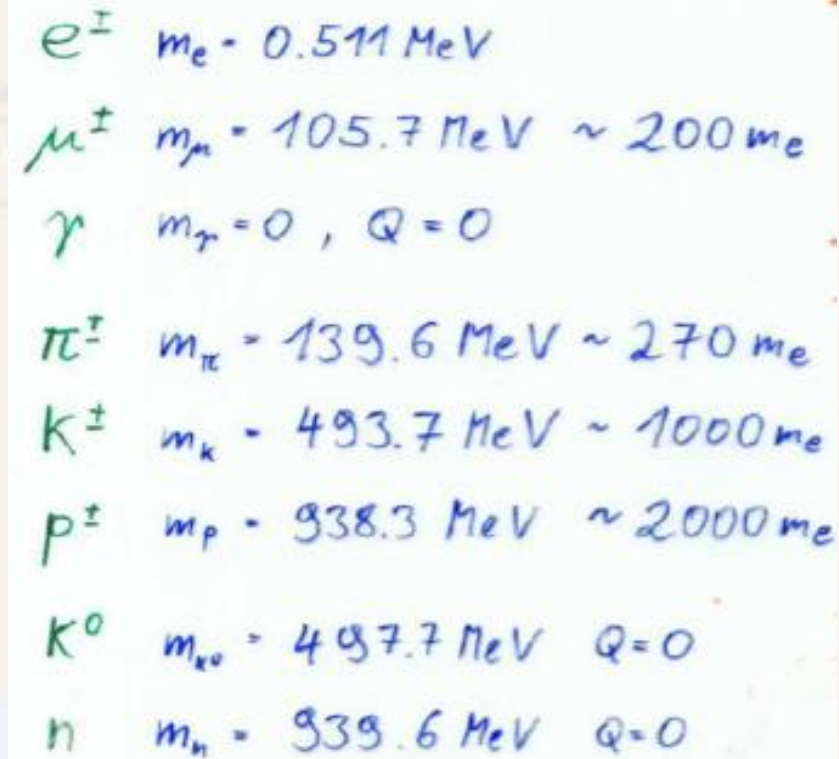 e± mₑ = 0.511 MeV
μ± m_μ = 105.7 MeV ~ 200 mₑ
γ m_γ = 0 , Q = 0
π± m_π = 139.6 MeV ~ 270 mₑ
K± m_k = 493.7 MeV ~ 1000 mₑ
p± m_p = 938.3 MeV ~ 2000 mₑ
K⁰ m_K⁰ = 497.7 MeV Q = 0
n m_n = 939.6 MeV Q = 0